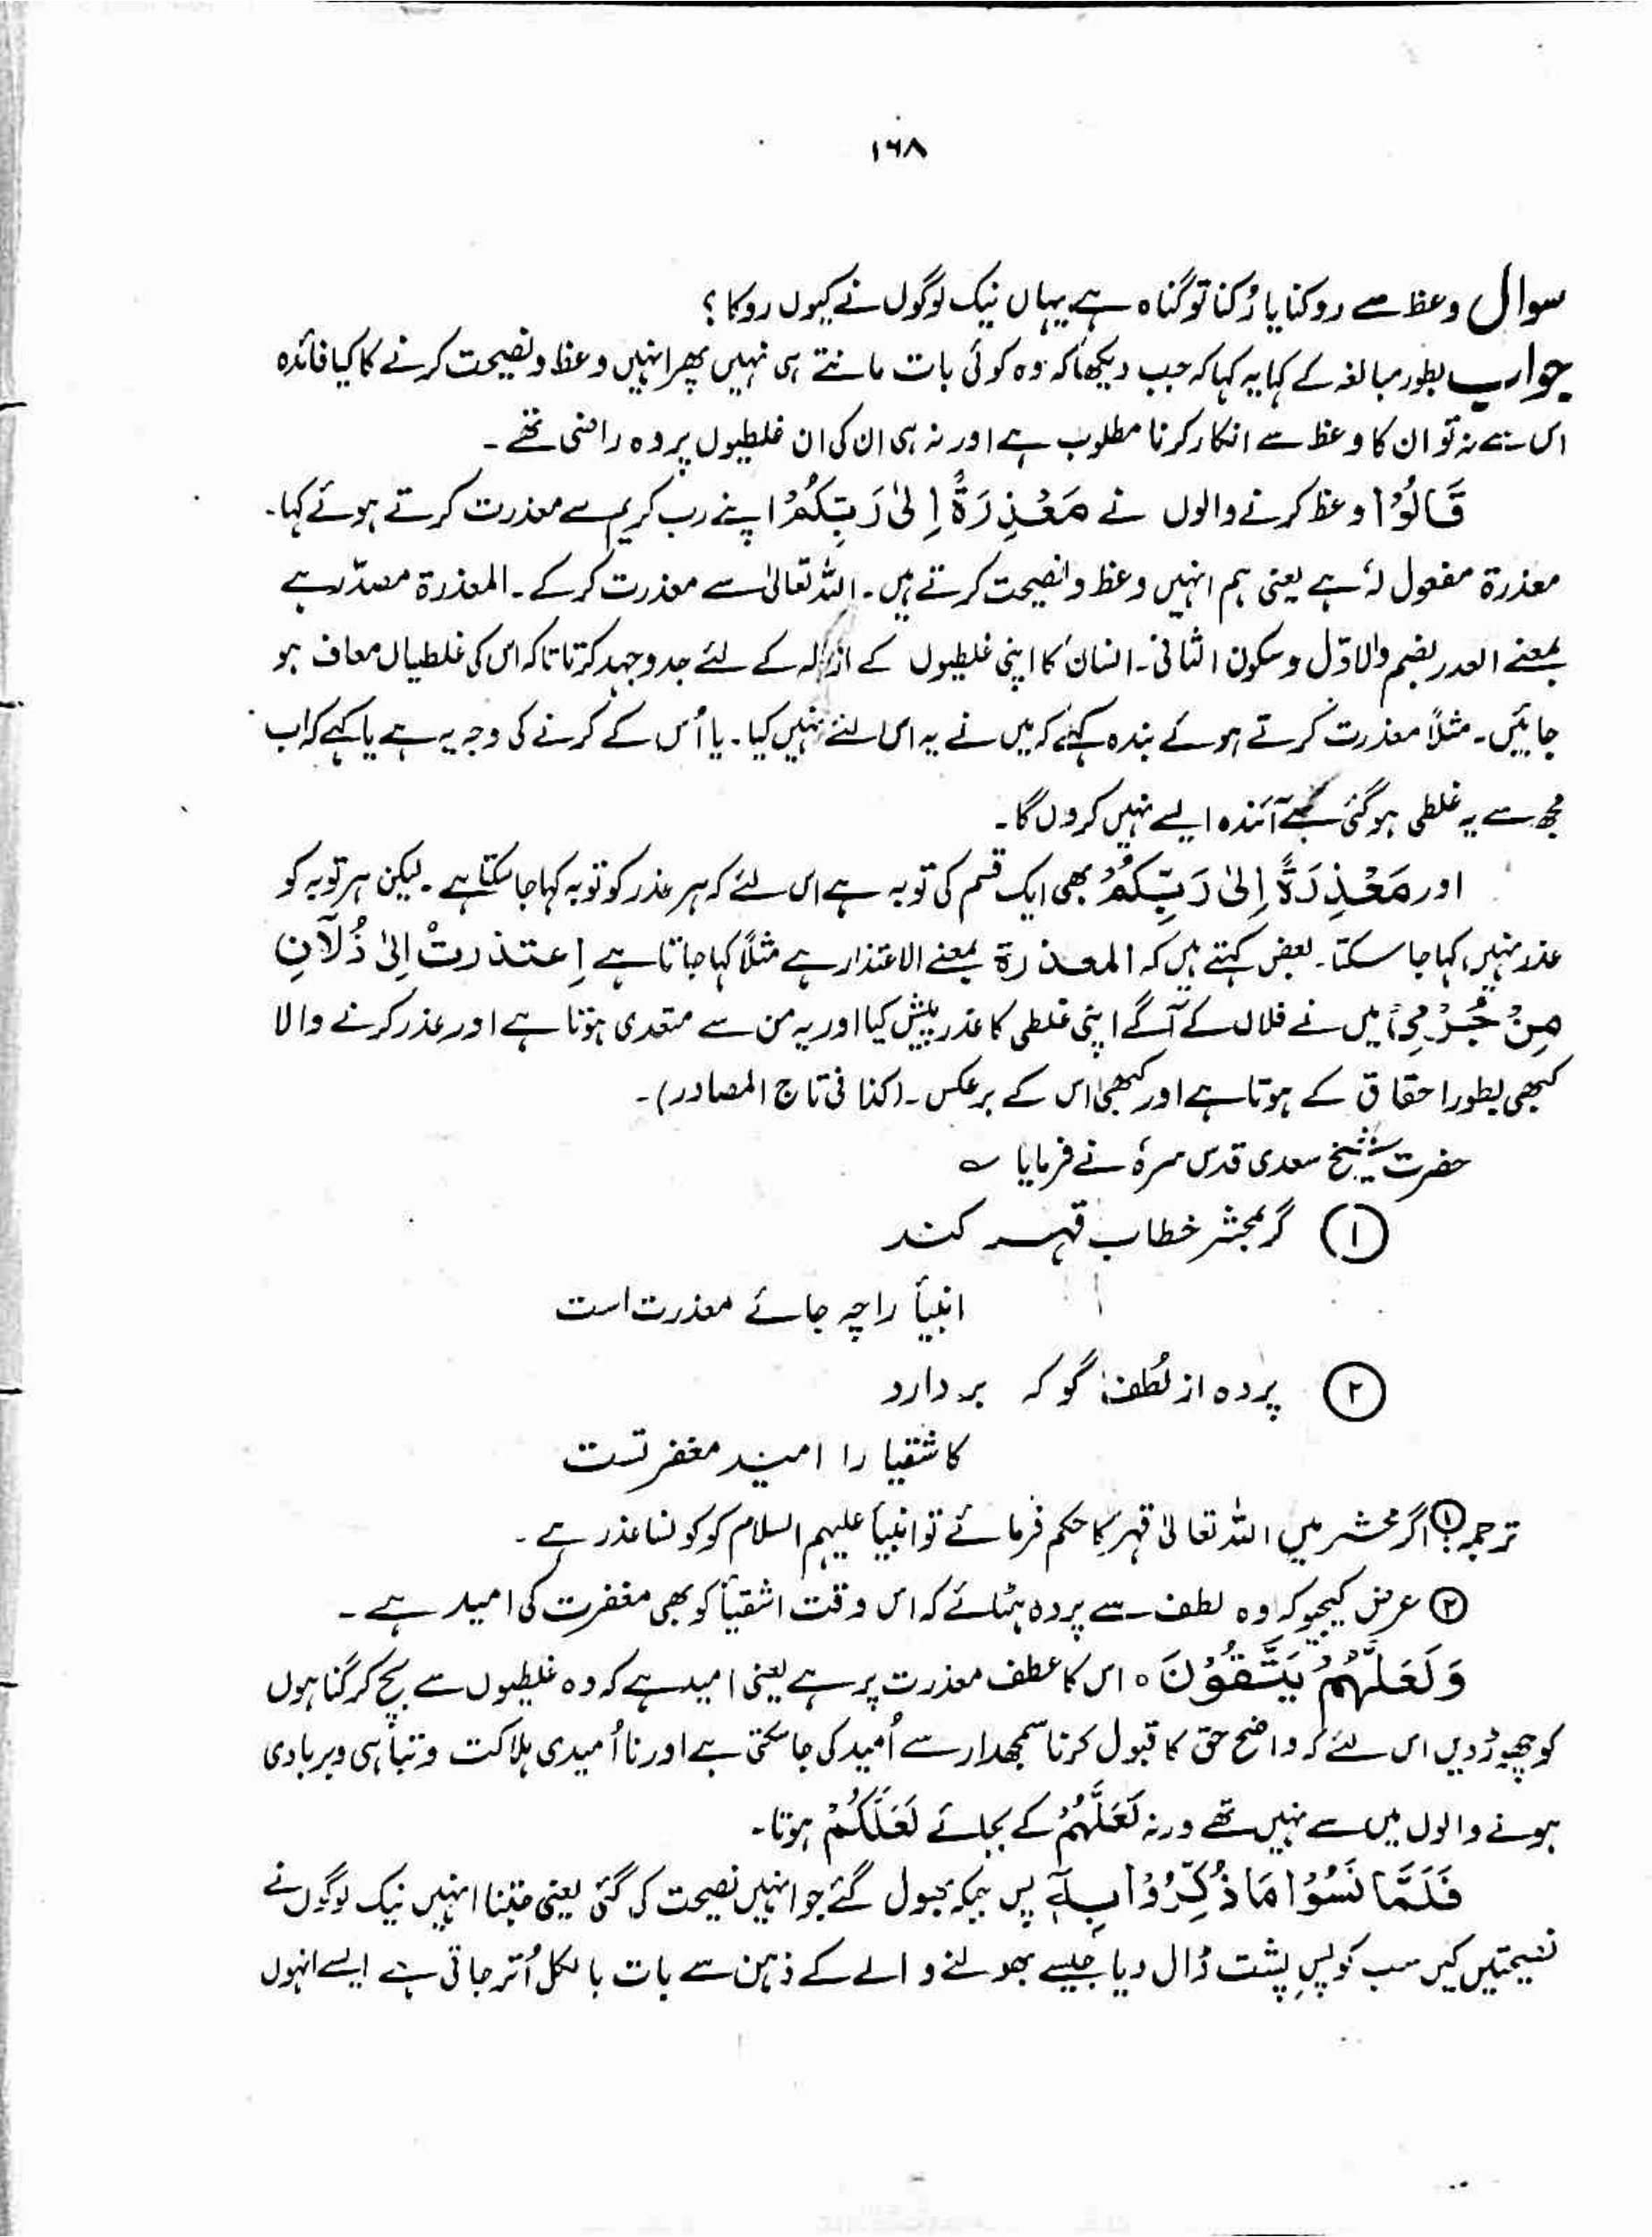 ۱۶۸
سوال وعظ سے روکنا یا رُکنا تو گناہ ہے یہاں نیک لوگوں نے کیوں روکا ؟
جواب بطور مبالغہ کے کہا یہ کہا کہ جب دیکھا کہ وہ کوئی بات مانتے ہی نہیں پھر انہیں وعظ و نصیحت کرنے کا کیا فائدہ
اس سے نہ تو ان کا وعظ سے انکار کرنا مطلوب ہے اور نہ ہی ان کی ان غلطیوں پر وہ راضی تھے ۔
قَالُوْا وعظ کرنے والوں نے مَعْذِرَةً اِلىٰ رَبِّكُمْ اپنے رب کریم سے معذرت کرتے ہوئے کہا۔
معذرة مفعول لہٗ ہے یعنی ہم انہیں وعظ و نصیحت کرتے ہیں ۔ اللہ تعالیٰ سے معذرت کر کے ۔ المعذرة مصدر ہے
بمعنے العدر بضم والاوّل و سکون الثانی ۔ انسان کا اپنی غلطیوں کے ازالہ کے لئے جدوجہد کرتا تاکہ اس کی غلطیاں معاف ہو
جائیں ۔ مثلاً معذرت کرتے ہوئے بندہ کہے کہ میں نے یہ اس لئے نہیں کیا ۔ یا اُس کے کرنے کی وجہ یہ ہے یا کہے کہ اب
مجھ سے یہ غلطی ہو گئی ہے آئندہ ایسے نہیں کروں گا ۔
اور مَعْذِرَةً اِلىٰ رَبِّكُمْ بھی ایک قسم کی توبہ ہے اس لئے کہ ہر عذر کو توبہ کہا جا سکتا ہے ۔ لیکن ہر توبہ کو
عذر نہیں کہا جا سکتا ۔ بعض کہتے ہیں کہ المعذرة بمعنے الاعتذار ہے مثلاً کہا جاتا ہے اِعتذرتْ اِلىٰ ذُلَآنٍ
مِنْ جُرْمِيْ میں نے فلاں کے آگے اپنی غلطی کا عذر پیش کیا اور یہ من سے متعدی ہوتا ہے اور عذر کرنے والا
کبھی بطور احقاق کے ہوتا ہے اور کبھی اس کے برعکس ۔ (کذا فی تاج المصادر) ۔
حضرت شیخ سعدی قدس سرہٗ نے فرمایا ؎
(۱) گر بمحشر خطاب قہر کند
انبیأ را چہ جائے معذرت است
(۲) پردہ از لُطف گو کہ بردارد
کاشقیا را امید مغفرتست
ترجمہ (۱) اگر محشر میں اللہ تعالیٰ قہر کا حکم فرمائے تو انبیأ علیہم السلام کو کونسا عذر ہے ۔
(۲) عرض کیجیو کہ وہ لطف سے پردہ ہٹائے کہ اس وقت اشقیأ کو بھی مغفرت کی امید ہے ۔
وَلَعَلَّهُمْ يَتَّقُوْنَ ٥ اس کا عطف معذرت پر ہے یعنی امید ہے کہ وہ غلطیوں سے بچ کر گناہوں
کو چھوڑ دیں اس لئے کہ واضح حق کا قبول کرنا سمجھدار سے اُمید کی جا سکتی ہے اور نا اُمیدی ہلاکت و تباہی و بربادی
ہونے والوں میں سے نہیں تھے ورنہ لَعَلَّهُمْ کے بجائے لَعَلَّكُمْ ہوتا ۔
فَلَمَّا نَسُوْا مَا ذُكِّرُوْا بِهٖ پس جبکہ بھول گئے جو انہیں نصیحت کی گئی یعنی جتنا انہیں نیک لوگوں نے
نصیحتیں کیں سب کو پسِ پشت ڈال دیا جیسے بھولنے والے کے ذہن سے بات بالکل اُتر جاتی ہے ایسے انہوں